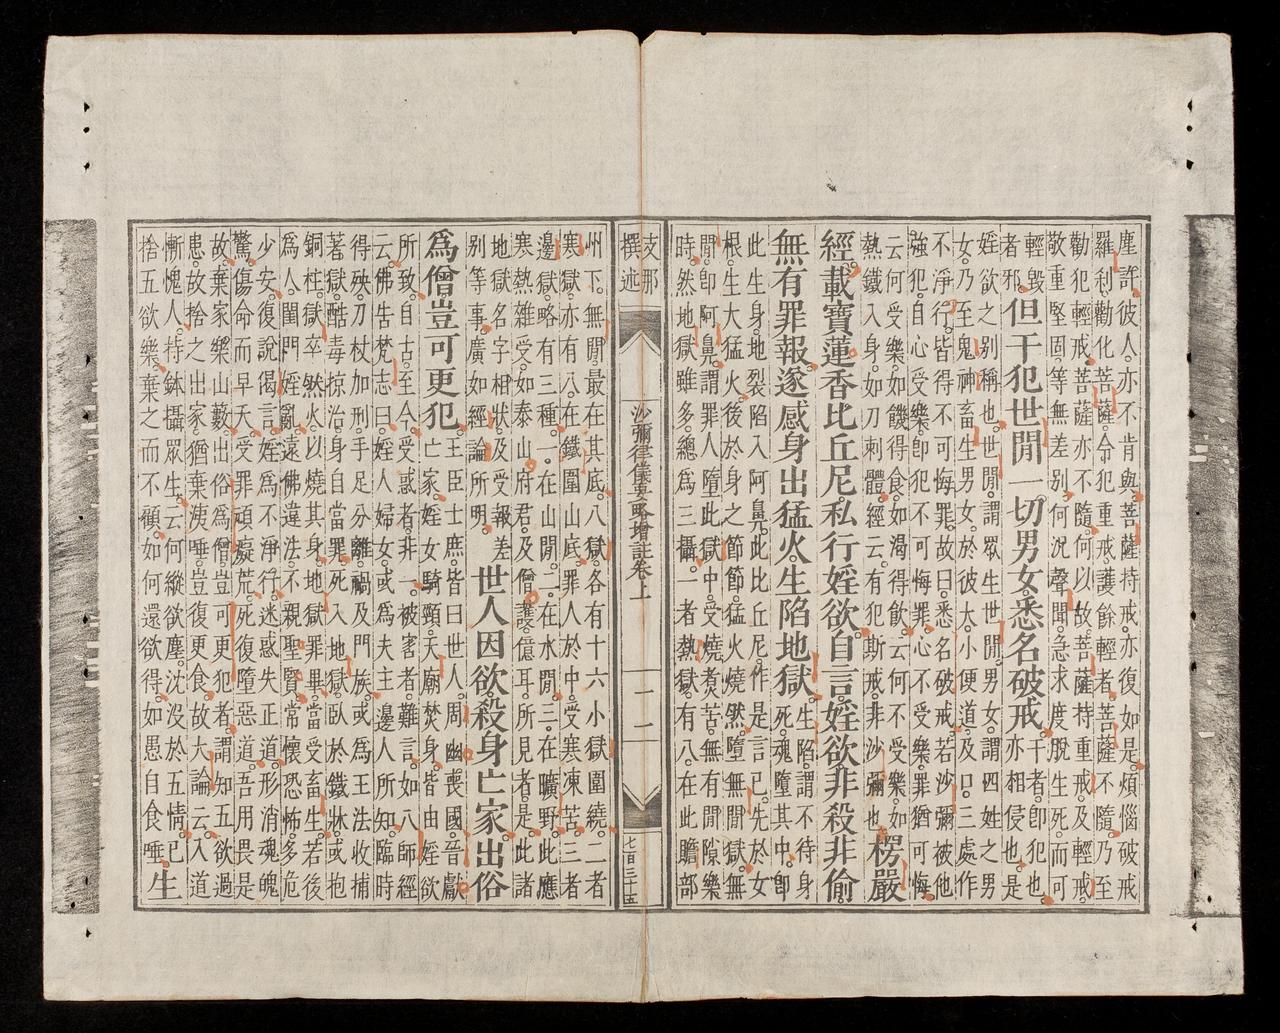 塵許。彼人亦不肯與。菩薩持戒。亦復如是。煩惱破戒
羅利勸化菩薩。令犯重戒。護餘輕者。菩薩不隨。乃至
勸犯輕戒。菩薩亦不隨。何以故。菩薩持重戒。及輕戒。
敬重堅固。等無差别。何況聲聞。急求度脫生死。而可
輕毀者邪。但干犯世間一切男女。悉名破戒。干者。即犯也。亦相侵也。是
婬欲之别稱也。世間。謂眾生世間。男女。謂四姓之男
女。乃至鬼神畜生男女。於彼大小便道。及口。三處作
不淨行。皆得不可悔罪。故曰。悉名破戒。若沙彌被他
強犯。自心受樂。即犯不可悔罪。心不受樂。罪猶可悔。
云何受樂。如饑得食。如渴得飲。云何不受樂。如
熱鐵入身。如刀刺體。經云。有犯斯戒。非沙彌也。楞嚴
經載寶蓮香比丘尼私行婬欲。自言婬欲非殺非偷。
無有罪報。遂感身出猛火。生陷地獄。生陷。謂不待身死。魂墮其中。即
此生身。地裂陷入阿鼻。此比丘尼。作是言已。先於女
根。生大猛火。後於身之節節。猛火燒然。墮無間獄。無
間。即阿鼻。謂罪人墮此獄中。受燒煑苦。無有間隙樂
時。然地獄雖多。總為三攝。一者熱獄。有八。在此贍部
支那撰述
沙彌律儀要略增註卷上
七百三十五
州下。無間最在其底。八獄。各有十六小獄圍繞。二者
寒獄。亦有八。在鐵圍山底。罪人於中。受寒凍苦。三者
邊獄。略有三種。一。在山間。二。在水間。三。在曠野。此應
寒熱雜受。如泰山府君。及僧護。億耳。所見者。是。此諸
地獄名字相狀。及受報差别等事。廣如經論所明。世人因欲。殺身亡家。出俗
為僧。豈可更犯。王臣士庶。皆曰世人。周幽喪國。晉獻亡家。婬女騎頸。天廟焚身。皆由婬欲
所致。自古至今。受惑者非一。被害者難言。如八師經
云。佛告梵志曰。婬人婦女。或為夫主邊人所知。臨時
得殃。刀杖加刑。手足分離。禍及門族。或為王法收捕
著獄。酷毒掠治。身自當罪。死入地獄。臥於鐵牀。或抱
銅柱。獄卒然火。以燒其身。地獄罪畢。當受畜生。若後
為人。閨門婬亂。遠佛違法。不親聖賢。常懷恐怖。多危
少安。復說偈言。婬為不淨行。迷惑失正道。形消魂魄
驚。傷命而早夭。受罪頑癡荒。死復墮惡道。吾用畏是
故。棄家樂山藪。出俗為僧。豈可更犯者。謂知五欲過
患。故捨之出家。猶棄洟唾。豈復更食。故大論云。入道
慚愧人。持鉢攝眾生。云何縱欲塵。沈没於五情。已
捨五欲樂。棄之而不顧。如何還欲得。如愚自食唾。生